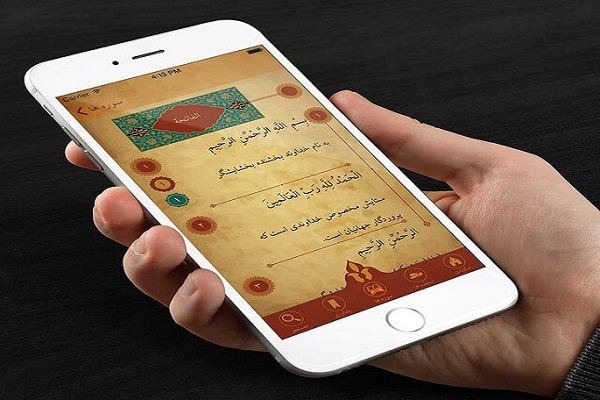 Carrier
4:19 PM
سوره ها
الفاتحة
بِسْمِ اللَّهِ الرَّحْمَٰنِ الرَّحِيمِ
به نام خداوند بخشنده بخشایشگر
الْحَمْدُ لِلَّهِ رَبِّ الْعَالَمِينَ
ستایش مخصوص خداوندی است که
پروردگار جهانیان است.
الرَّحْمَٰنِ الرَّحِيمِ